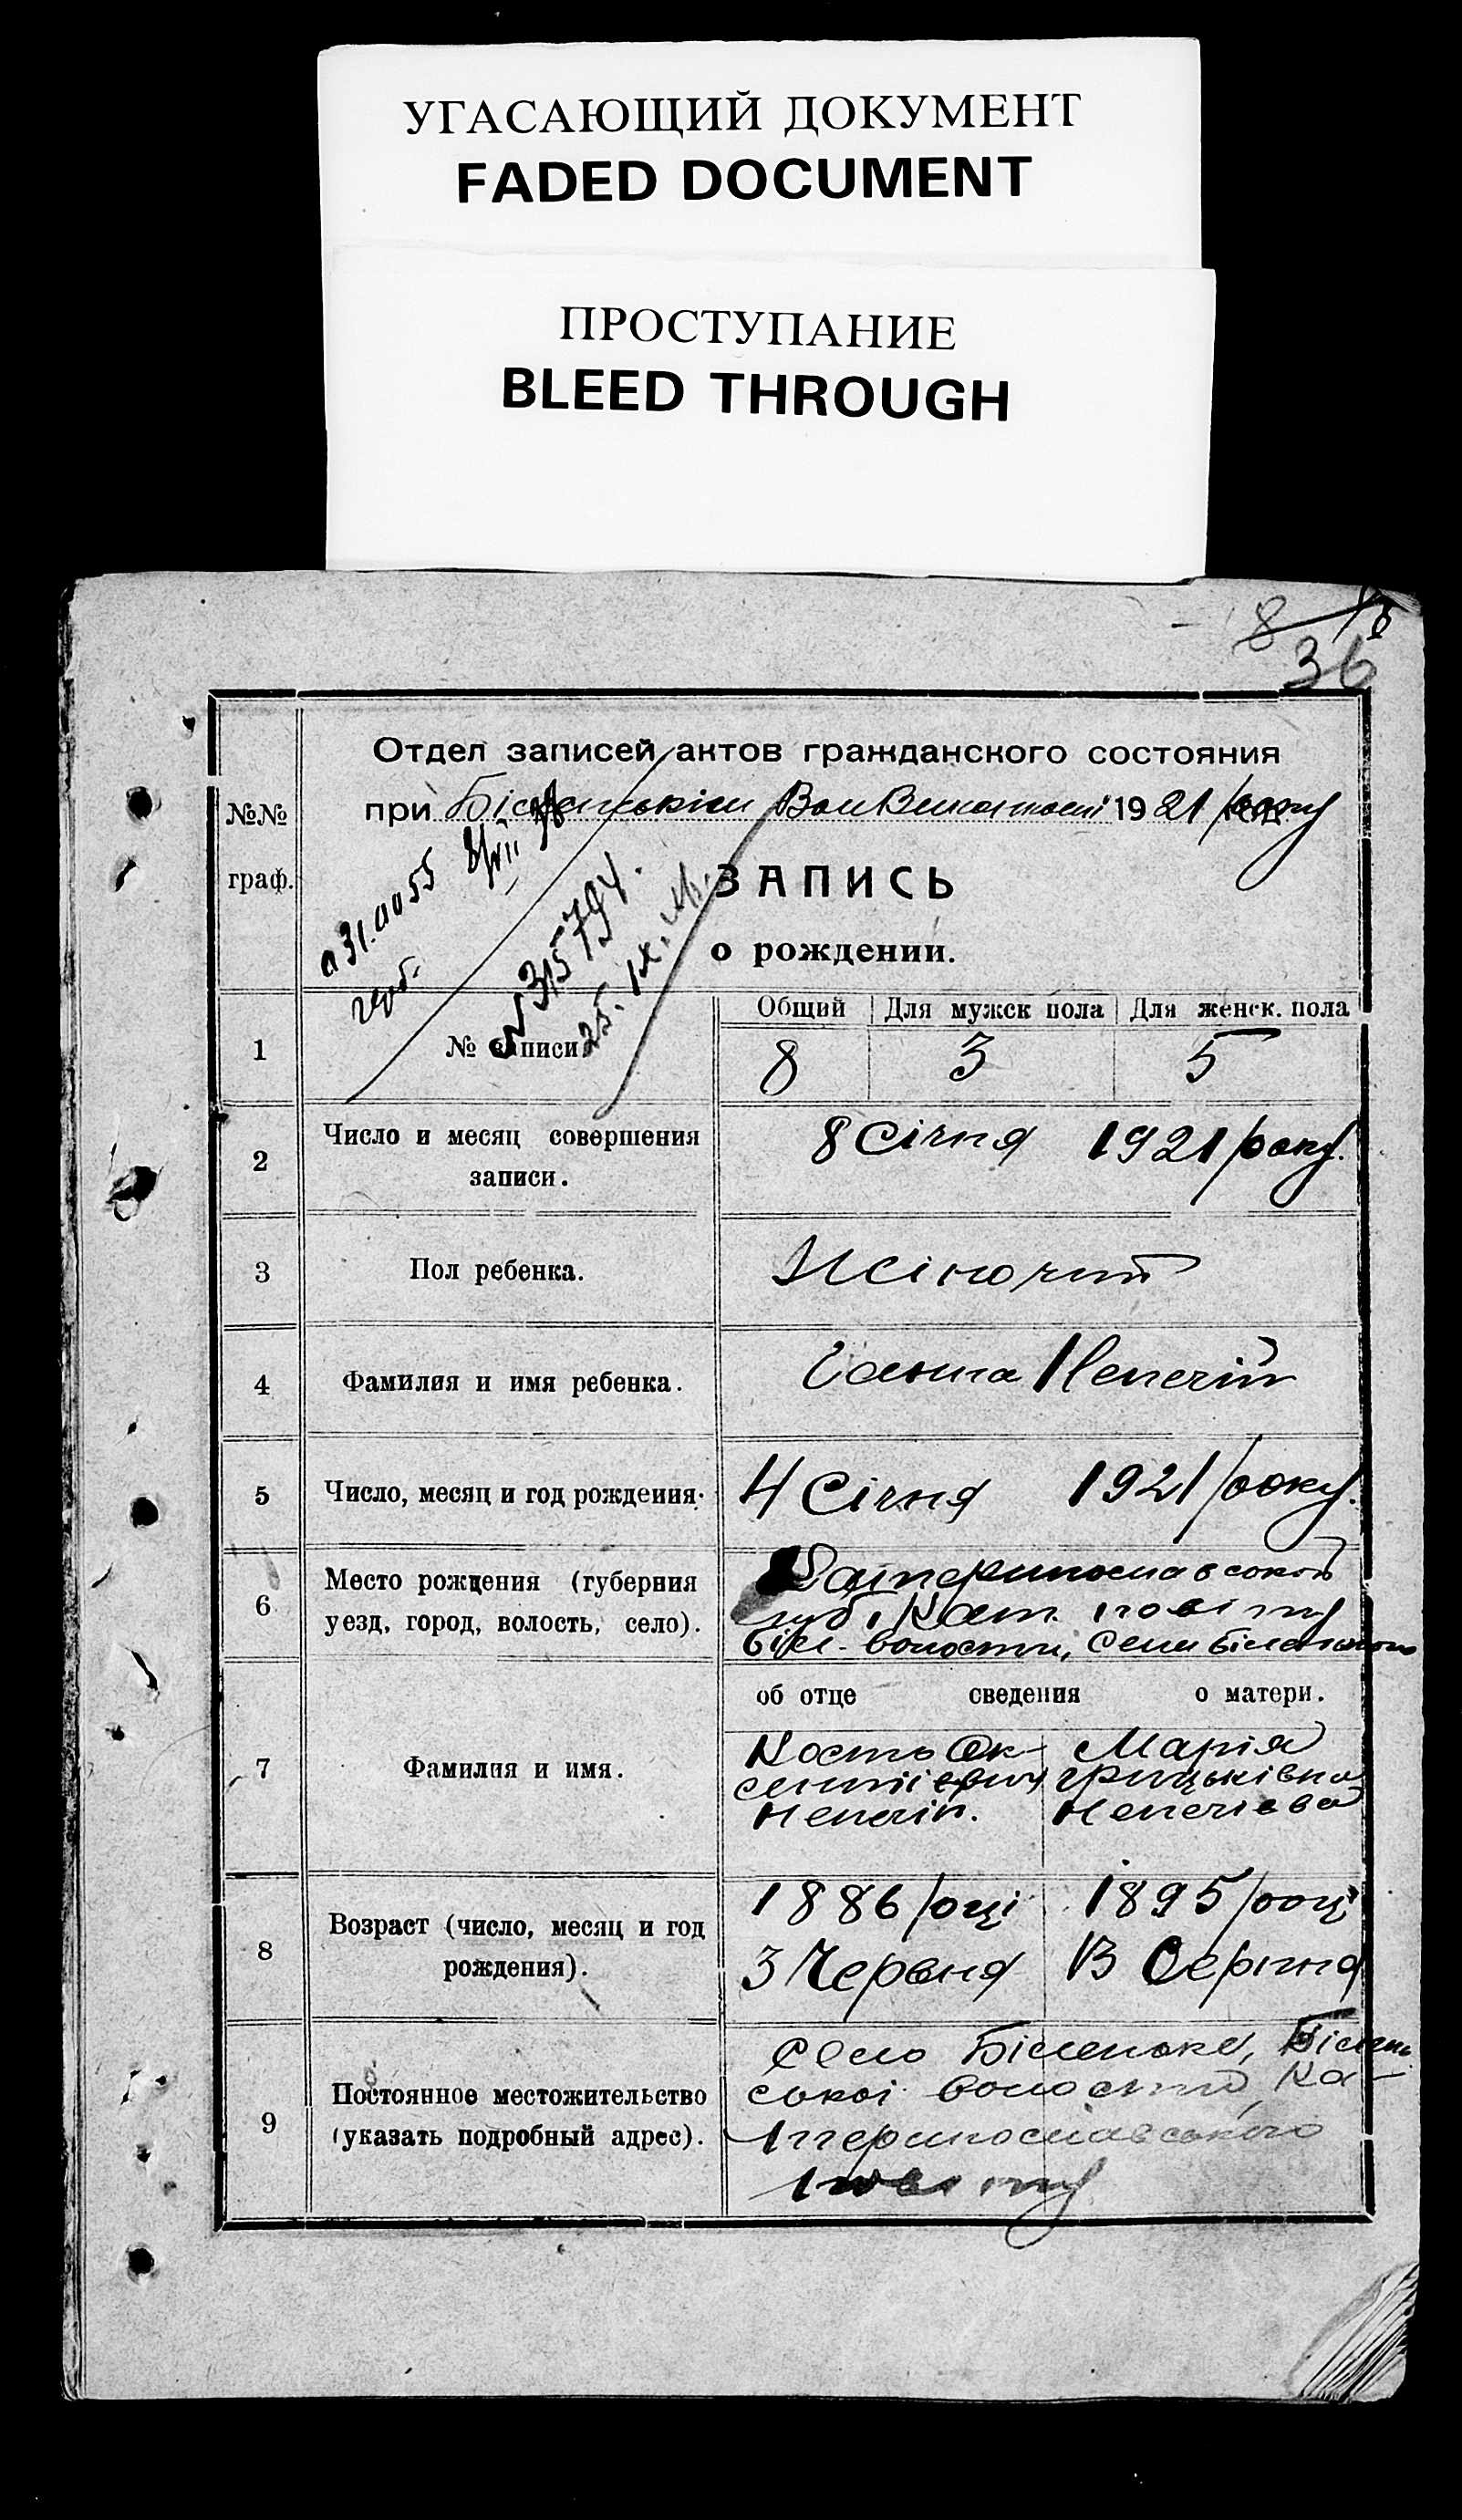 УГАСАЮЩИЙ ДОКУМЕНТ
FADED DOCUMENT
ПРОСТУПАНИЕ
BLEED THROUGH
8
36
№№
граф.
Отдел записей актов гражданского состояния
при Біленськім 1921 року
ЗАПИСЬ
о рождении.
315794.
25. IX.
Общий Для мужск пола Для женск. пола
1 № записи 8 3 5
2 Число и месяц совершения
записи.
8 Січня 1921 року.
3 Пол ребенка. Жіночий
4 Фамилия и имя ребенка. Ганна Непечій
5 Число, месяц и год рождения. 4 Січня 1921 року.
6 Место рождения (губерния
уезд, город, волость, село).
Катеринославської
губ. Кат. повіту
Біл. волости, Села Біленького
об отце сведения о матери.
7 Фамилия и имя.
Кость Ок-
сентієвич
Непечій.
Марія
Грицьківна
Непечієва
8 Возраст (число, месяц и год
рождения).
1886 році
3 Червня
1895 році
13 Серпня
9 Постоянное местожительство
(указать подробный адрес).
Село Біленьке, Білень-
ської волости, Ка-
теринославського
повіту